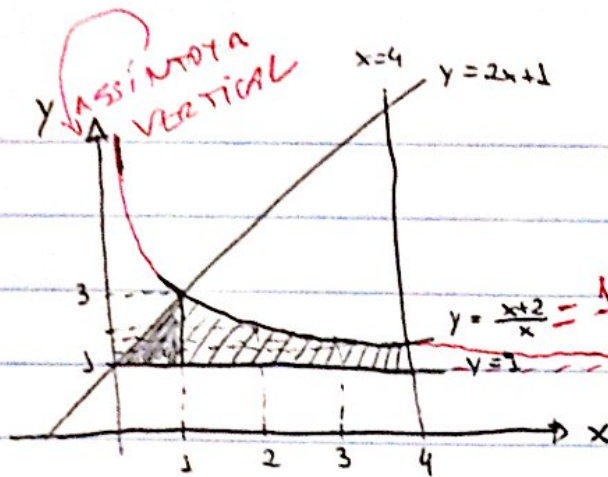 ASSÍNTOTA
VERTICAL
x=4
y = 2x+1
y
3
y = x+2/x =
1
y=1
x
1
2
3
4